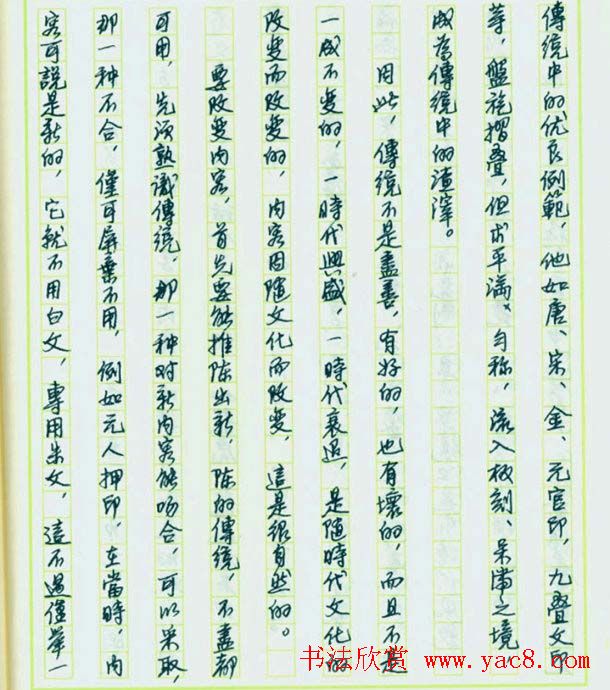 傳統中的优良例範，他如唐、宋、金、元官印，九疊文印
等，盤旋摺疊，但求平滿、勻称，流入板刻、呆滯之境
成為傳統中的渣滓。
因此，傳統不是盡善，有好的，也有壞的，而且不是
一成不变的，一時代興盛，一時代衰退，是随時代文化的
改变而改变的，内容因随文化而改变，這是很自然的。
要改变内容，首先要能推陈出新，陈的傳統，不盡都
可用，先須熟識傳統，那一种对新内容能吻合，可以采取，
那一种不合，僅可屏棄不用，例如元人押印，在當時，内
容可説是新的，它就不用白文，專用朱文，這不過僅舉一
书法欣赏 www.yac8.com